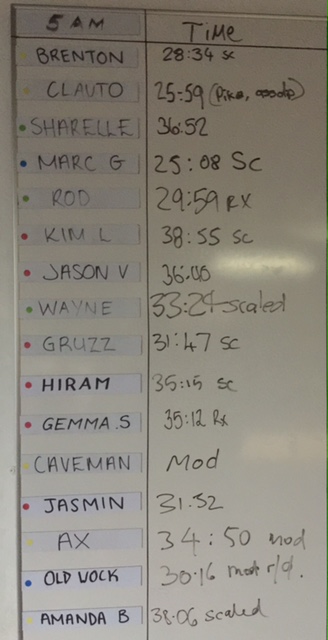 5 AM TIME
BRENTON 28:34 sc
CLAUTO 25-59 (Pike,
SHARELLE 36:52
MARC G 25:08 SC
ROD 29:59 RX
KIM L 38:55 SC
JASON V 36:
WAYNE 33:24 scaled
GRUZZ 31:47 SC
HIRAM 35:15 SC
GEMMA.S 35:12 Rx
CAVEMAN Mod
JASMIN 31.52
AX 34:50 mod
OLD VOCK 30:16 r/d.
AMANDA B 38:06 scaled